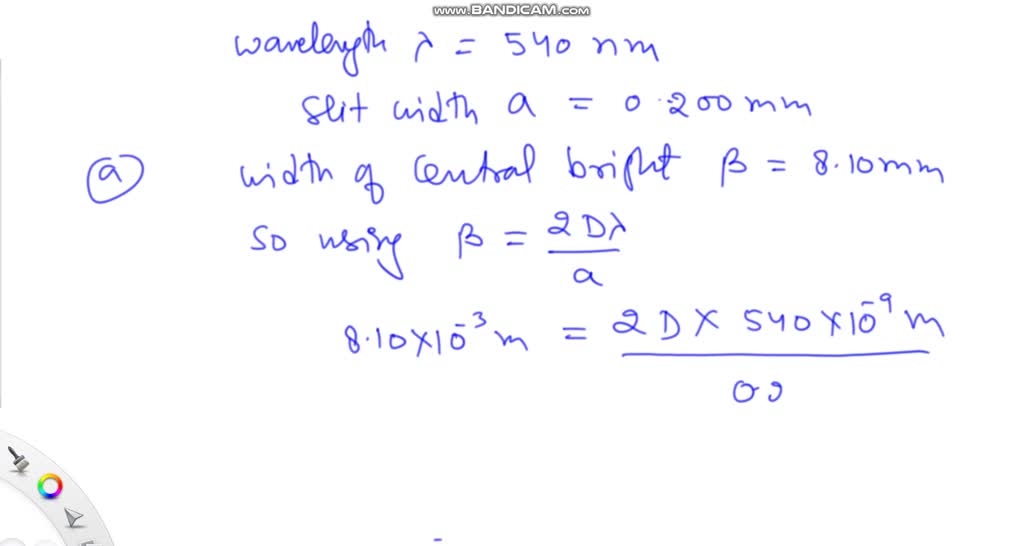 www.BANDICAM.com
wavelength λ = 540 nm
slit width a = 0.200 mm
(a) width of central bright β = 8.10 mm
so using β = 2Dλ / a
8.10×10⁻³ m = 2D × 540×10⁻⁹ m / 0.2